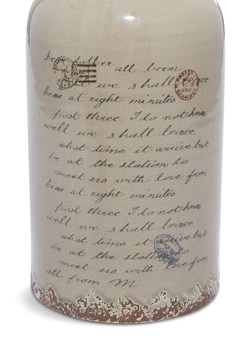 Dear father all been
we shall leave
home at eight minutes
past three I do not know
well we shall leave
what time it arrive but
be at the station to
meet us with love from
home at eight minutes
past three I do not know
well we shall leave
what time it arrive but
be at the station to
meet us with love from
all from M